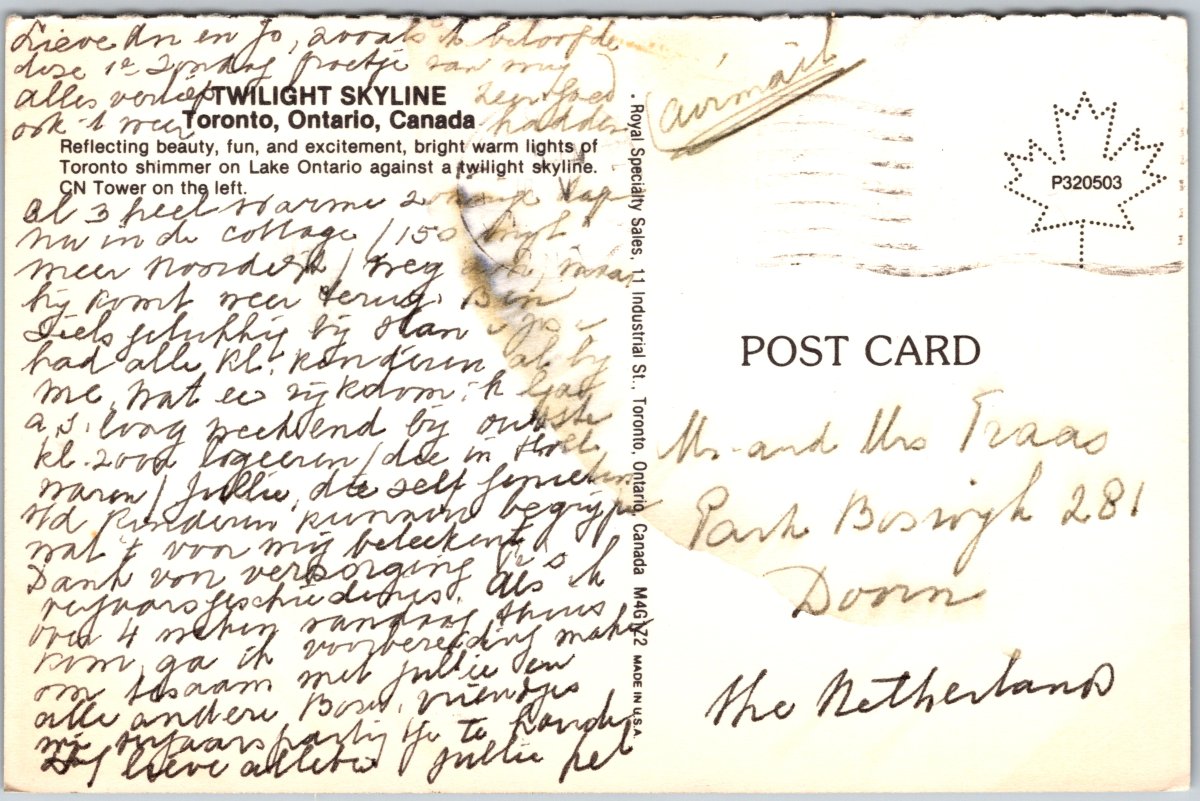 Lieve An en Jo, zoals ik beloofde
deze 1e Zondag groetje van mij
alles verliep zeer goed
ook 't weer hadden
TWILIGHT SKYLINE
Toronto, Ontario, Canada
Reflecting beauty, fun, and excitement, bright warm lights of
Toronto shimmer on Lake Ontario against a twilight skyline.
CN Tower on the left.
al 3 heel warme zonnige dag
nu in de cottage / 150
meer Noordelijk / weg maar
hij komt weer terug. Ben
zielsgelukkig bij Han
had alle kl. kinderen al by
me, wat een rijkdom. ik ga
a.s. long weekend bij oudste
kl. zoon logeeren / die in
waren / Jullie, die self genieten
v/d kinderen kunnen begrijpen
wat 't voor mij beteekent,
Dank voor verzorging
verjaarsgeschiedenis. Als ik
over 4 weken vandaag thuis
kom, ga ik voorbereiding maken
om tesaam met jullie en
alle andere Bosw. vriendjes
mijn verjaarspartijtje te houden
Dag lieve allebei jullie
Royal Specialty Sales, 11 Industrial St., Toronto, Ontario, Canada M4G 1Z2 MADE IN U.S.A.
airmail
P320503
POST CARD
Mr. and Mrs Traas
Park Boswijk 281
Doorn
the Netherlands